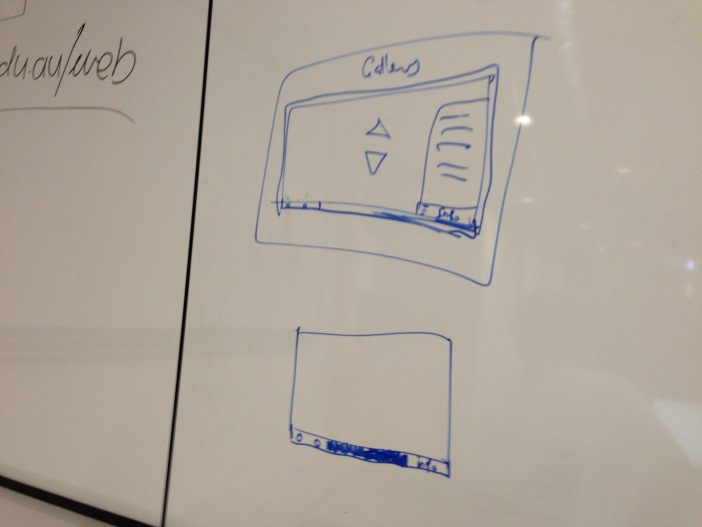 du.au/web
Gallery
Info
info